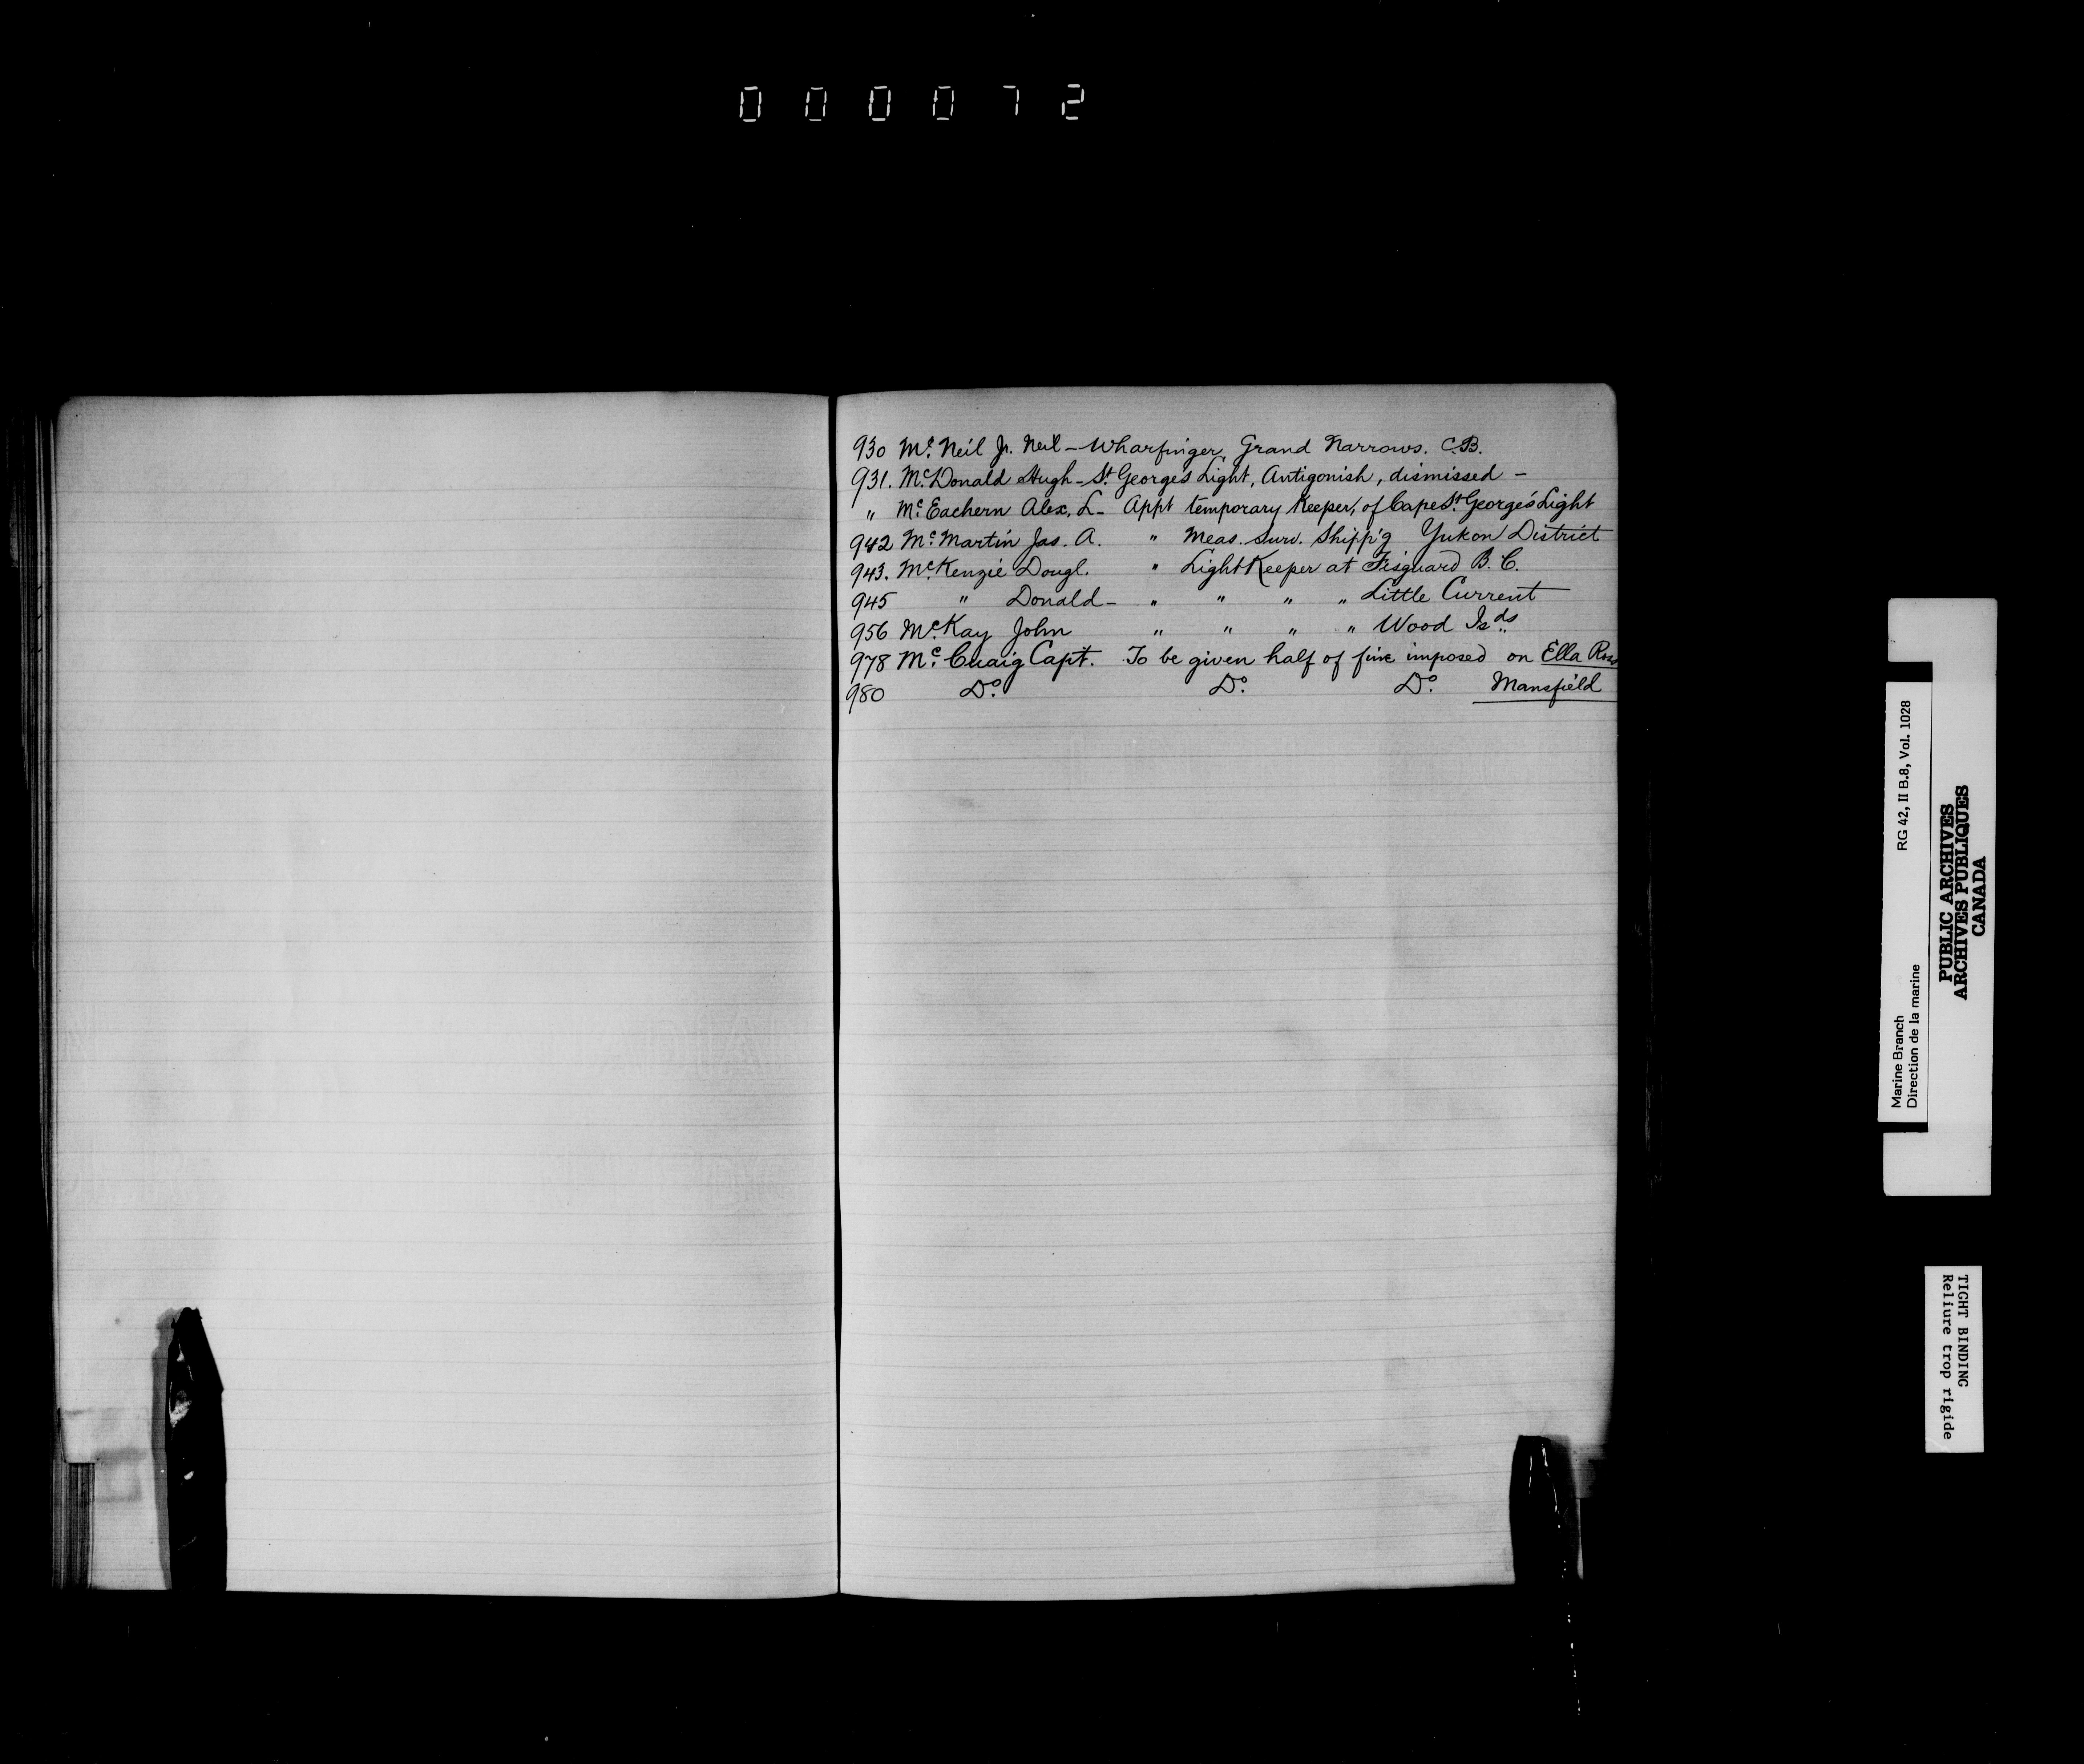 000072
930 Mc. Neil Jr. Neil - Wharfinger, Grand Narrows. C.B.
931. McDonald Hugh - St. George's Light, Antigonish, dismissed -
" Mc. Eachern Alex. L - Appt temporary Keeper, of Cape St. George's Light
942 Mc. Martin Jas. A. " Meas. Surv. Shipp'g Yukon District
943. McKenzie Dougl. " Light Keeper at Fisguard B.C.
945 " Donald - " " " " Little Current
956 McKay John " " " " Wood Isds
978 Mc. Cuaig Capt. To be given half of fine imposed on Ella Ross
980 Do. Do. Do. Mansfield
Marine Branch RG 42, II B.8, Vol. 1028
Direction de la marine
PUBLIC ARCHIVES
ARCHIVES PUBLIQUES
CANADA
TIGHT BINDING
Reliure trop rigide